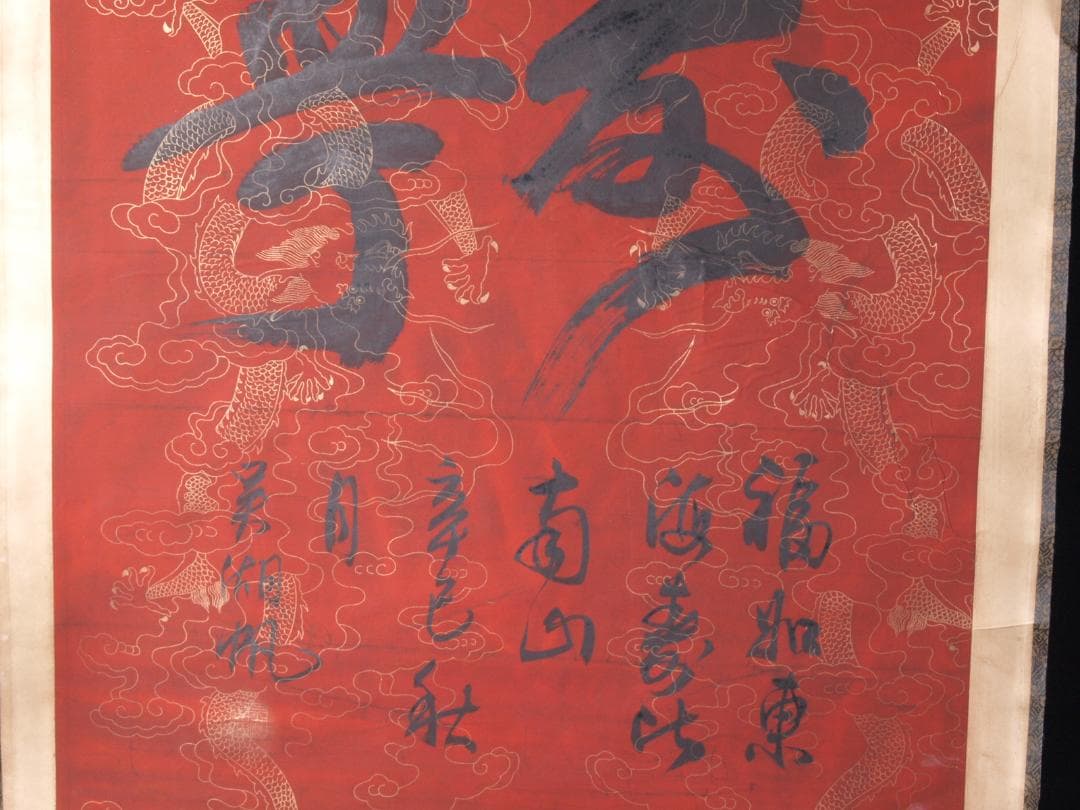 福如東
海壽比
南山
辛巳秋
月
吳湖帆